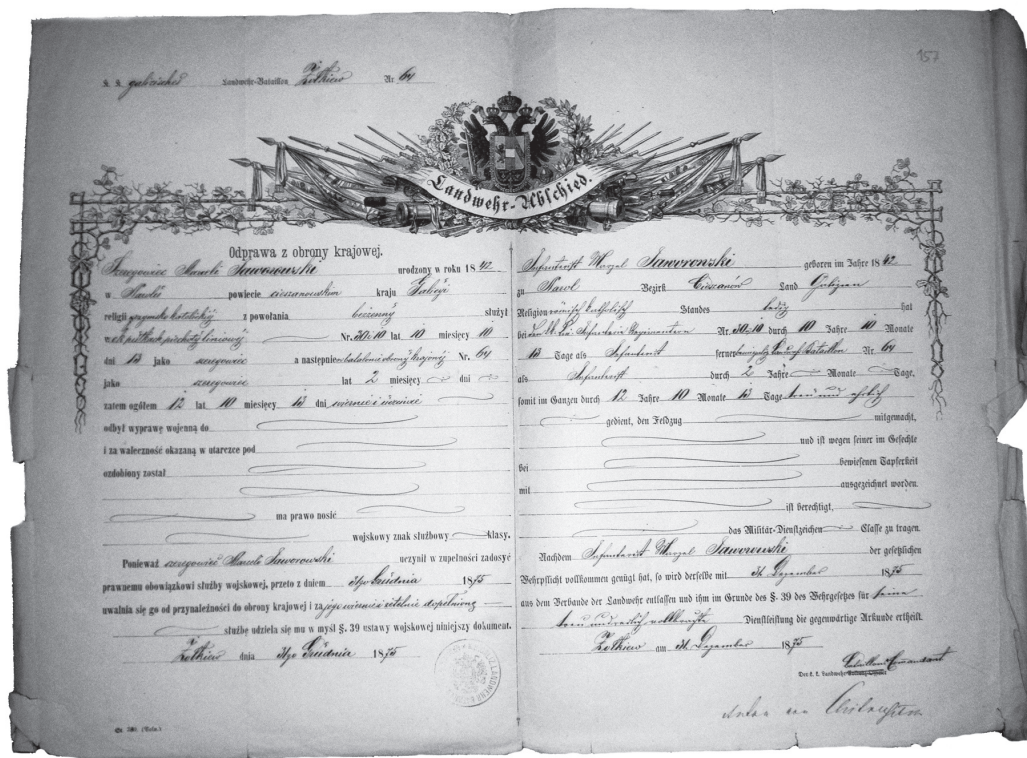 157
k. k. galizisches Landwehr-Bataillon Żółkiew Nr 64
Landwehr-Abschied.
Odprawa z obrony krajowej.
Szeregowiec Marceli Jaworowski urodzony w roku 1842
w powiecie cieszanowskim kraju Galicyi
religii rzymsko katolickiej z powołania służył
w Nr. 30 i 10 lat 10 miesięcy 10
dni 13 jako szeregowiec a następnie batalionie obrony krajowej Nr. 64
jako szeregowiec lat 2 miesięcy dni
zatem ogółem 12 lat 10 miesięcy 13 dni wiernie i uczciwie
odbył wyprawę wojenną do
i za waleczność okazaną w utarczce pod
ozdobiony został
ma prawo nosić
wojskowy znak służbowy klasy.
Ponieważ szeregowiec Marceli Jaworowski uczynił w zupełności zadosyć
prawnemu obowiązkowi służby wojskowej, przeto z dniem 31go Grudnia 1875
uwalnia się go od przynależności do obrony krajowej i za jego wiernie i rzetelnie dopełnioną
służbę udziela się mu w myśl §. 39 ustawy wojskowej niniejszy dokument.
Żółkiew dnia 31go Grudnia 1875
Infanterist Marzel Jaworowski geboren im Jahre 1842
zu Bezirk Cieszanów Land Galizien
Religion römisch katholisch Standes ledig hat
bei Infanterie Regimentern Nr. 30 u 10 durch 10 Jahre 10 Monate
13 Tage als Infanterist ferner Bataillon Nr 64
als Infanterist durch 2 Jahre Monate Tage,
somit im Ganzen durch 12 Jahre 10 Monate 13 Tage treu und ehrlich
gedient, den Feldzug mitgemacht,
und ist wegen seiner im Gefechte
bei bewiesenen Tapferkeit
mit ausgezeichnet worden.
ist berechtigt,
das Militär-Dienstzeichen Classe zu tragen.
Nachdem Infanterist Marzel Jaworowski der gesetzlichen
Wehrpflicht vollkommen genügt hat, so wird derselbe mit 31. Dezember 1875
aus dem Verbande der Landwehr entlassen und ihm im Grunde des §. 39 des Wehrgesetzes für seine
treu und redlich vollbrachte Dienstleistung die gegenwärtige Urkunde ertheilt.
Żółkiew am 31. Dezember 1875
Bataillons Comandant
Der k. k. Landwehr